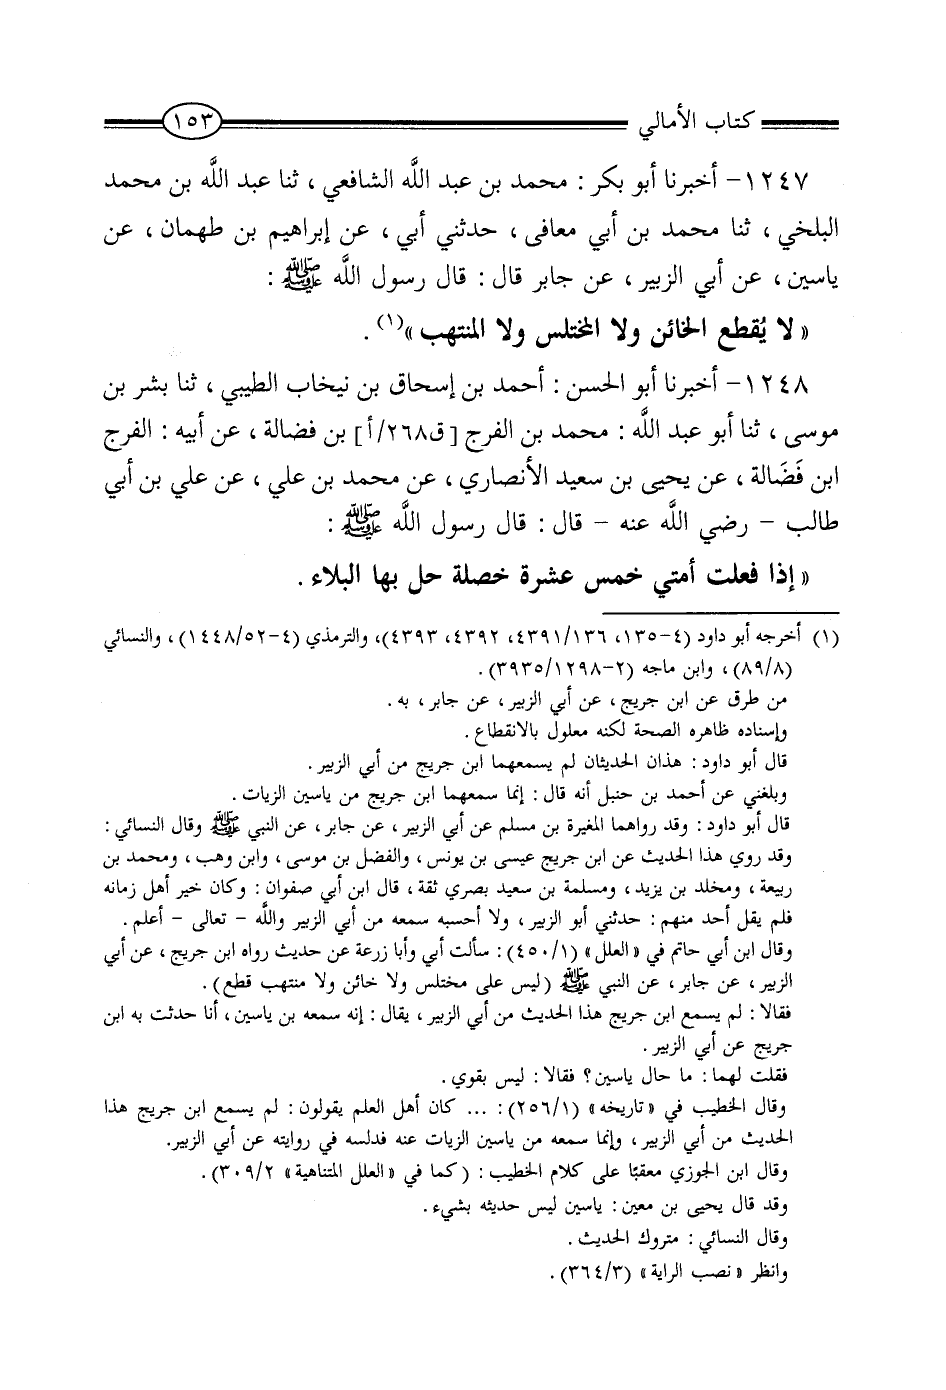 كتاب الأمالي ١٥٣
١٢٤٧- أخبرنا أبو بكر : محمد بن عبد اللَّه الشافعي ، ثنا عبد اللَّه بن محمد
البلخي ، ثنا محمد بن أبي معافى ، حدثني أبي ، عن إبراهيم بن طهمان ، عن
ياسين ، عن أبي الزبير ، عن جابر قال : قال رسول اللَّه ﷺ :
« لا يُقطع الخائن ولا المختلس ولا المنتهب »(١) .
١٢٤٨- أخبرنا أبو الحسن : أحمد بن إسحاق بن نيخاب الطيبي ، ثنا بشر بن
موسى ، ثنا أبو عبد اللَّه : محمد بن الفرج [ق٢٦٨/أ] بن فضالة ، عن أبيه : الفرج
ابن فَضَالة ، عن يحيى بن سعيد الأنصاري ، عن محمد بن علي ، عن علي بن أبي
طالب - رضي اللَّه عنه - قال : قال رسول اللَّه ﷺ :
« إذا فعلت أمتي خمس عشرة خصلة حل بها البلاء .
(١) أخرجه أبو داود (٤-١٣٥، ٤٣٩١/١٣٦، ٤٣٩٢، ٤٣٩٣)، والترمذي (٤-١٤٤٨/٥٢) ، والنسائي
(٨٩/٨) ، وابن ماجه (٢-٣٩٣٥/١٢٩٨) .
من طرق عن ابن جريج ، عن أبي الزبير ، عن جابر ، به .
وإسناده ظاهره الصحة لكنه معلول بالانقطاع .
قال أبو داود : هذان الحديثان لم يسمعهما ابن جريج من أبي الزبير .
وبلغني عن أحمد بن حنبل أنه قال : إنما سمعهما ابن جريج من ياسين الزيات .
قال أبو داود : وقد رواهما المغيرة بن مسلم عن أبي الزبير ، عن جابر ، عن النبي ﷺ وقال النسائي :
وقد روي هذا الحديث عن ابن جريج عيسى بن يونس ، والفضل بن موسى ، وابن وهب ، ومحمد بن
ربيعة ، ومخلد بن يزيد ، ومسلمة بن سعيد بصري ثقة ، قال ابن أبي صفوان : وكان خير أهل زمانه
فلم يقل أحد منهم : حدثني أبو الزبير ، ولا أحسبه سمعه من أبي الزبير واللَّه - تعالى - أعلم .
وقال ابن أبي حاتم في «العلل» (٤٥٠/١) : سألت أبي وأبا زرعة عن حديث رواه ابن جريج ، عن أبي
الزبير ، عن جابر ، عن النبي ﷺ (ليس على مختلس ولا خائن ولا منتهب قطع) .
فقالا : لم يسمع ابن جريج هذا الحديث من أبي الزبير ، يقال : إنه سمعه بن ياسين ، أنا حدثت به ابن
جريج عن أبي الزبير .
فقلت لهما : ما حال ياسين؟ فقالا : ليس بقوي .
وقال الخطيب في «تاريخه» (٢٥٦/١) : ... كان أهل العلم يقولون : لم يسمع ابن جريج هذا
الحديث من أبي الزبير ، وإنما سمعه من ياسين الزيات عنه فدلسه في روايته عن أبي الزبير.
وقال ابن الجوزي معقبًا على كلام الخطيب : (كما في «العلل المتناهية» ٣٠٩/٢) .
وقد قال يحيى بن معين : ياسين ليس حديثه بشيء .
وقال النسائي : متروك الحديث .
وانظر «نصب الراية» (٣٦٤/٣) .